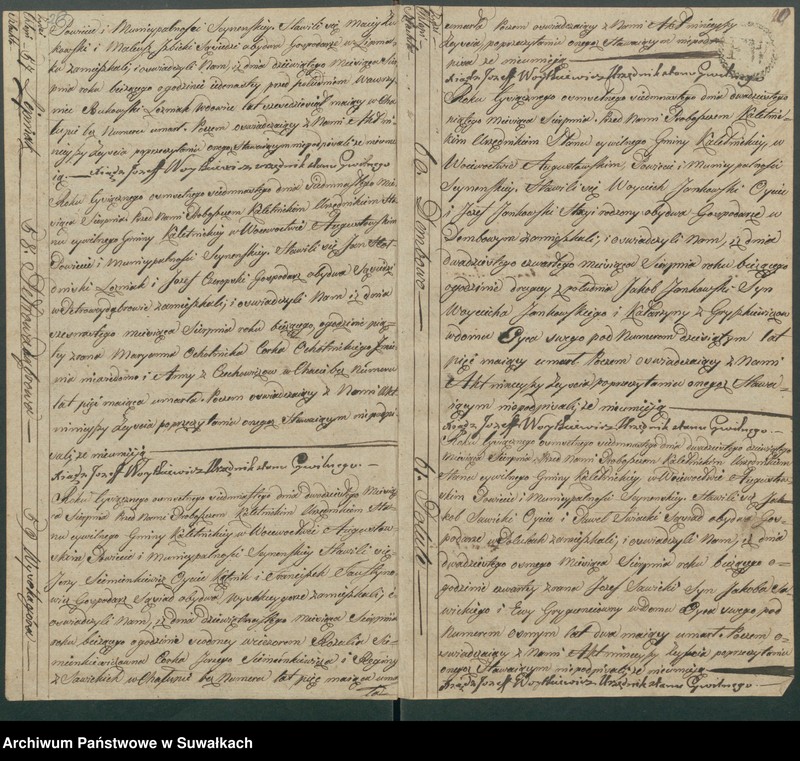 Powiecie i Municypalności Seynenskiey, Stawili się Maciey
kowski i Mateusz Sąsiedzi obydwa Gospodarze w Lipnia-
ku zamieszkali i oswiadczyli Nam, iż dnia dziesiątego Miesiąca Sier-
pnia roku bieżącego o godzinie iedenastey przed południem Wawrzy-
niec Bukowski Lozniak wdowiec lat szescdziesiąt maiący w Cha-
łupie bez Numeru umarł. Poczem oswiadczaiący z Nami Akt ni-
nieyszy Zeyscia po przeczytaniu onego Stawaiącym niepodpisali że nieumie-
ią. — Xiądz Jozeff Woytkiewicz urzędnik stanu Cywilnego
Roku tysiącznego osmsetnego siedmnastego dnia siedmnastego Mie-
siąca Sierpnia Przed Nami Proboszczem Kaletńskim Urzędnikiem Sta-
nu cywilnego Gminy Kaletńskiey w Woiewodztwie Augustowskim
Powiecie i Municypalności Seynenskiey. Stawili się Jan
Lozniak i Jozef Czeropski Gospodarz obydwa Sąsiedzi
zamieszkali; i oswiadczyli Nam iż dnia
szesnastego miesiąca Sierpnia roku bieżącego, o godzinie pią-
tey zrana Maryanna Ochotnicka Corka Ochotnickiego Imie-
nia niewiadomo i Anny z Czechowiczow w Chacie bez Numeru
lat pięć maiąca umarła. Poczem oswiadczaiący z Nami Akt
ninieyszy Zeyscia po przeczytaniu onego Stawaiącym niepodpi-
sali że nieumieią
Xiądz Jozeff Woytkiewicz Urzędnik stanu Cywilnego. —
Roku tysiącznego osmsetnego siedmnastego dnia dwudziestego Miesią-
ca Sierpnia Przed Nami Proboszczem Kaletńskim Urzędnikiem Sta-
nu cywilnego Gminy Kaletńskiey w Woiewodztwie Augustow-
skim Powiecie i Municypalności Seynenskiey Stawili się
Jerzy Siemienkiewicz Oyciec i Franciszek
Gospodarz Sąsiad obydwa w Wysokieygorze zamieszkali; i
oswiadczyli Nam, iż dnia dziewiętnastego miesiąca Sierpnia
roku bieżącego o godzinie siodmey wieczorem Rozalia Sie-
mienkiewiczowna Corka Jerzego Siemienkiewicza i Reginy
z Sawickich w Chałupie bez Numeru lat pięć maiąca uma-
ła
68.
59 Wysokagora
umarła Poczem oswiadczaiący z Nami Akt ninieyszy
Zeyscia po przeczytaniu onego Stawaiącym niepodpi-
sali że nieumieią
Xiądz Jozeff Woytkiewicz Urzędnik stanu Cywilnego
Roku tysiącznego osmsetnego siedmnastego dnia dwudziestego
piątego Miesiąca Sierpnia. Przed Nami Proboszczem Kaletńs-
kim Urzędnikiem Stanu cywilnego Gminy Kaletńskiey, w
Woiewodztwie Augustowskim, Powiecie i Municypalności
Seynenskiey, Stawili się Woyciech Jankowski Oyciec
i Jozef Jankowski Stryi rodzony obydwa Gospodarze w
Dombowym zamieszkali; i oswiadczyli Nam, iż dnia
dwudziestego czwartego miesiąca Sierpnia roku bieżącego
o godzinie drugiey z południa Jakob Jankowski Syn
Woyciecha Jankowskiego i Katarzyny z Gryszkiewiczow
w domu Oyca swego pod Numerem dziewiątym lat
pięć maiący umarł Poczem oswiadczaiący z Nami
Akt ninieyszy Zeyscia po przeczytaniu onego Stawa-
iącym niepodpisali, że nieumieią
Xiądz Jozeff Woytkiewicz Urzędnik stanu Cywilnego. —
Roku tysiącznego osmsetnego siedmnastego dnia dwudziestego dziewiątego
miesiąca Sierpnia Przed Nami Proboszczem Kaletńskim Urzędnikiem
Stanu cywilnego Gminy Kaletńskiey, w Woiewodztwie Augustow-
skim Powiecie i Municypalności Seynenskiey. Stawili się Ja-
kob Sawicki Oyciec i Paweł Sąsiad obydwa Gos-
podarze zamieszkali; i oswiadczyli Nam, iż dnia
dwudziestego osmego miesiąca Sierpnia roku bieżącego o-
godzinie czwartey zrana Jozef Sawicki Syn Jakoba Sa-
wickiego i Ewy w domu Oyca swego pod
Numerem osmym lat dwa maiący umarł. Poczem o-
swiadczaiący z Nami Akt ninieyszy Zeyscia po przeczytaniu
onego Stawaiącym niepodpisali, że nieumieią
Xiądz Jozeff Woytkiewicz Urzędnik stanu Cywilnego. —
60. Dombowo
61.
Archiwum Państwowe w Suwałkach